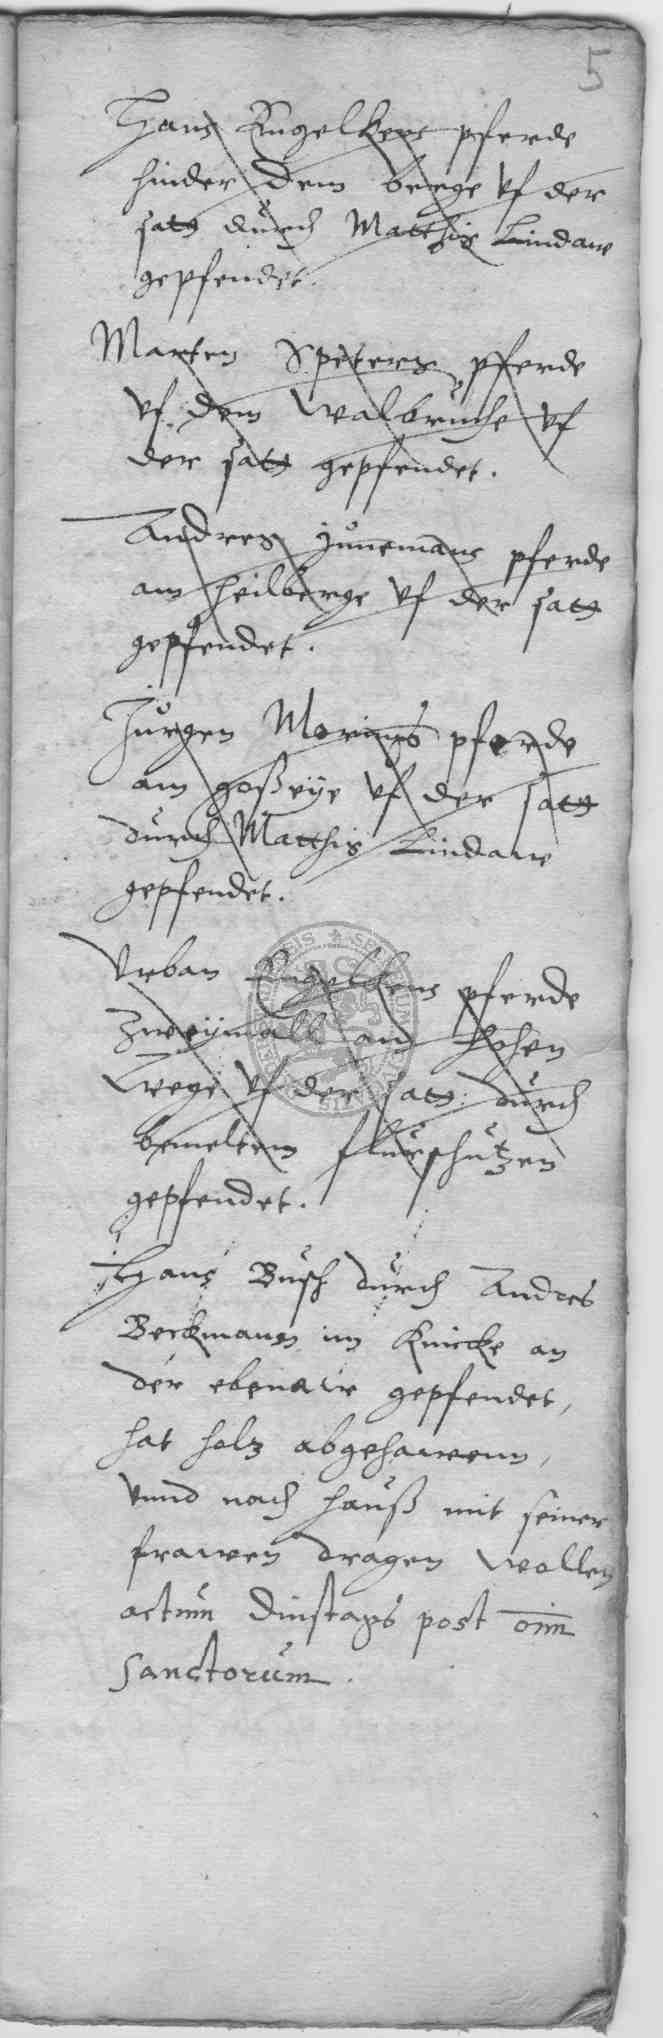 5
Hans Engelkens pferde
hinder dem berge vf der
satt durch Matthis Lindaw
gepfendet.
Marten Speters pferde
vf dem Walbruche vf
der satt gepfendet.
Andres Junemans pferde
am heilberge vf der satt
gepfendet.
Jurgen Morings pferde
am vf der satt
durch Matthis Lindaw
gepfendet.
Vrban Engelkens pferde
Zweymall am hohen
Wege vf der satt durch
bemelten flurschutzen
gepfendet.
Hans Busch durch Andres
Beckmann im Knicke an
der gepfendet,
hat holz abgehawenn,
vnnd nach hauß mit seiner
frawen dragen wollen
actum Dinstags post oim
Sanctorum.